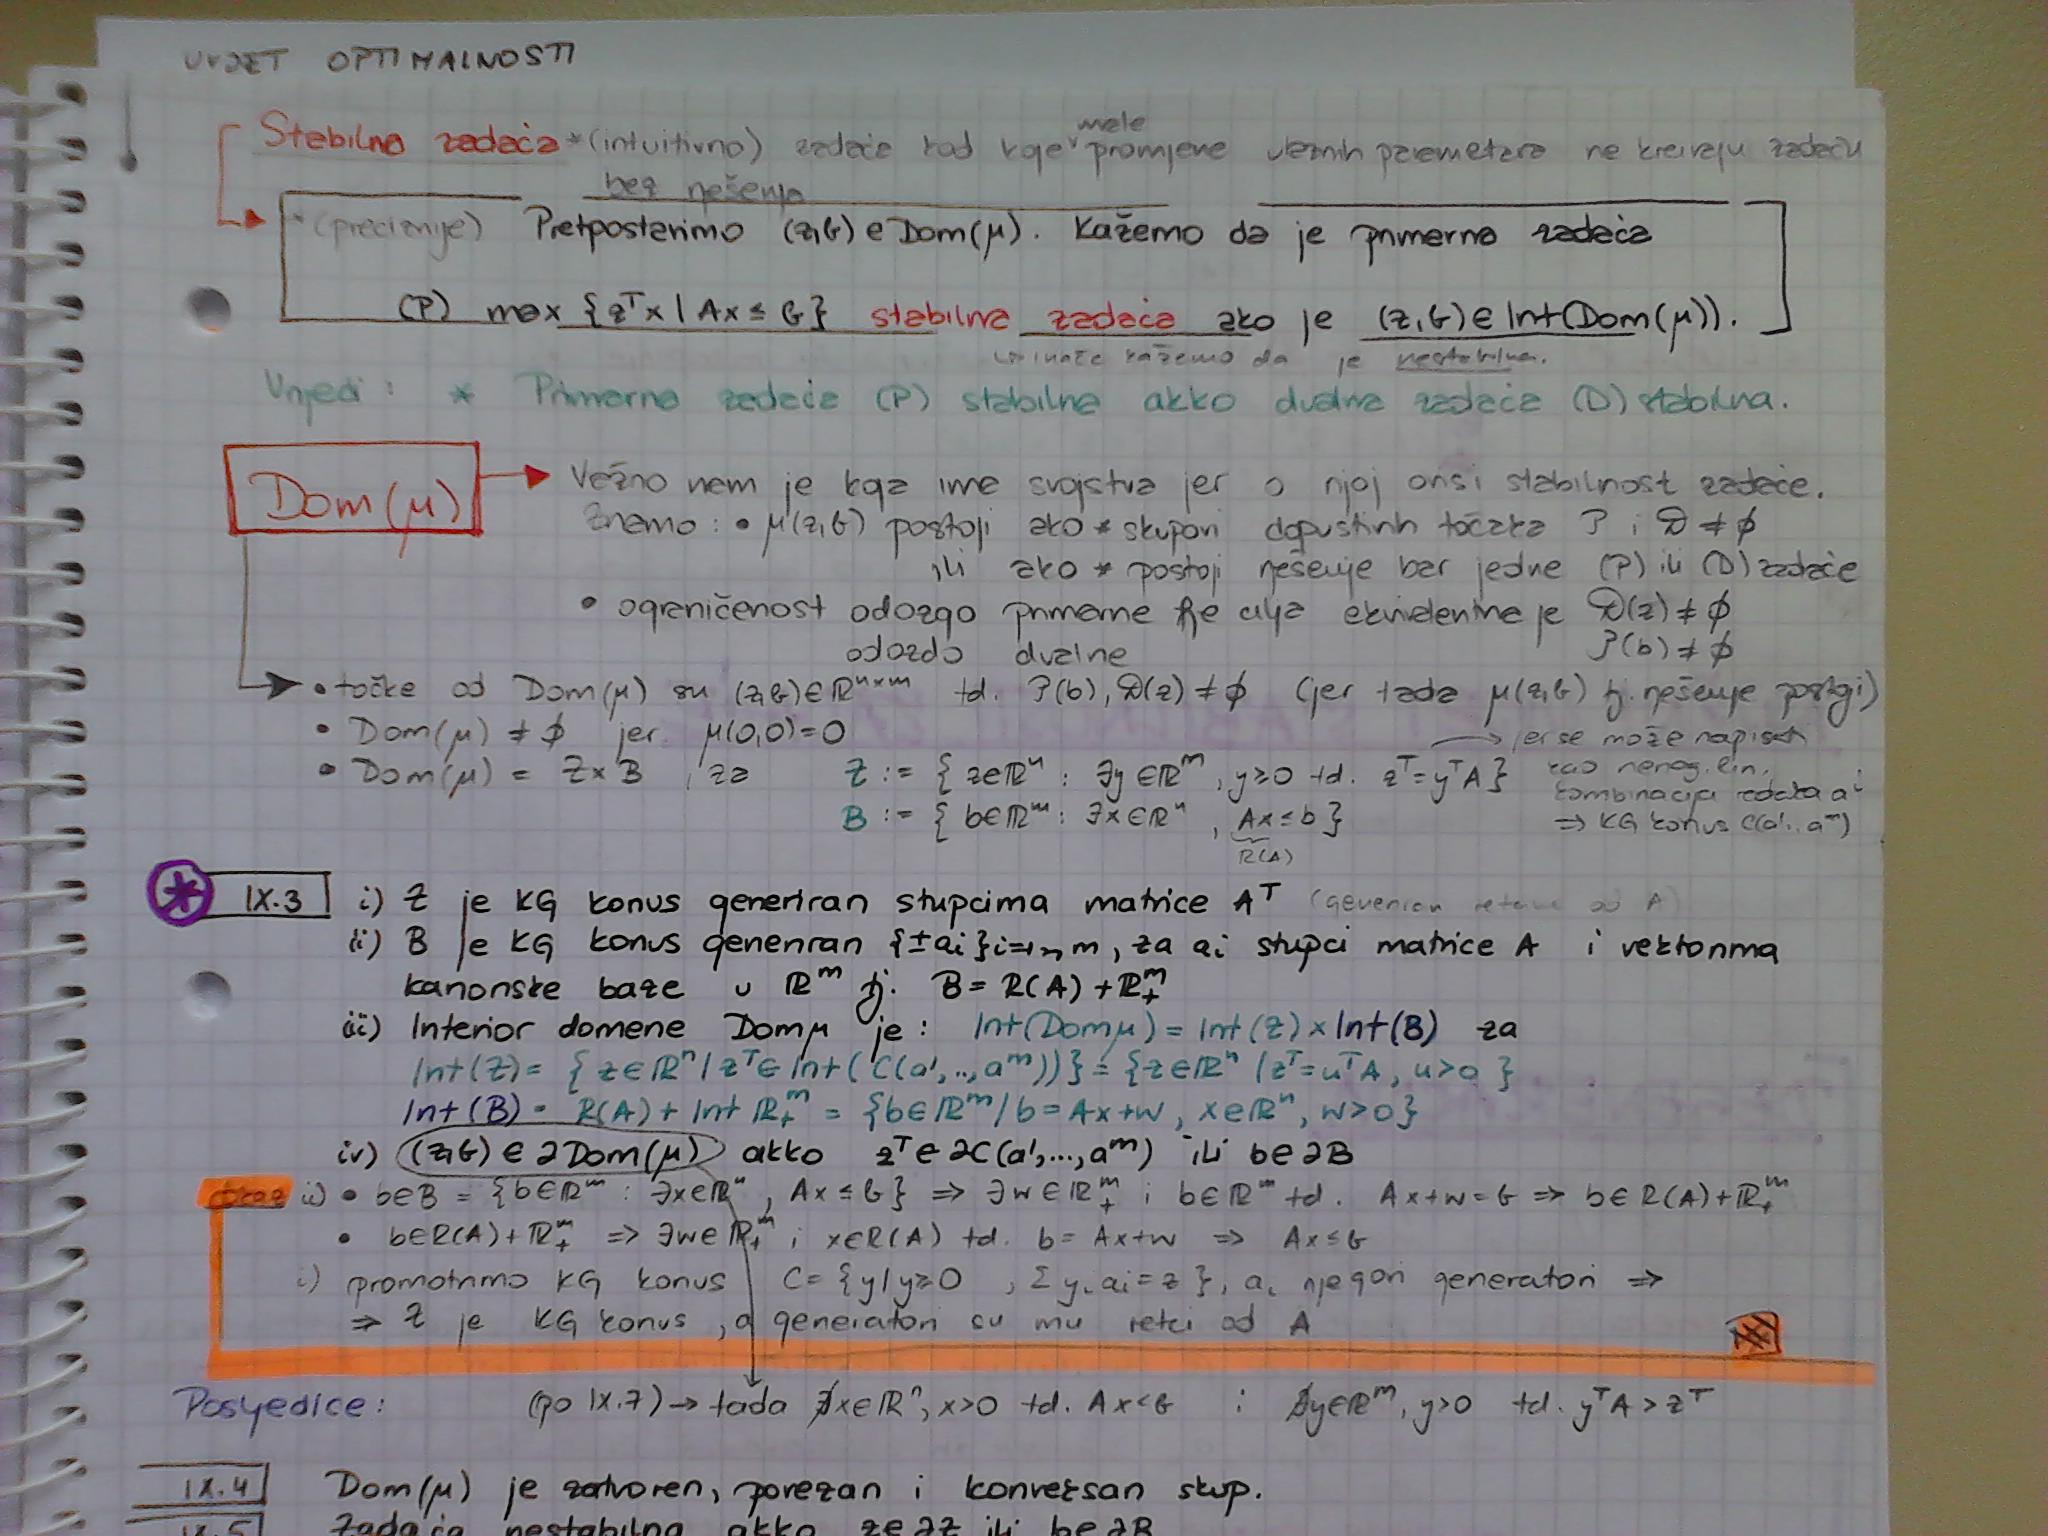 UVJET OPTIMALNOSTI
Stabilna zadaća * (intuitivno) zadaća kod koje male promjene ulaznih parametara ne kreiraju zadaću
bez rješenja
* (preciznije) Pretpostavimo (z,b) ∈ Dom(μ). Kažemo da je primarna zadaća
(P) max {zᵀx | Ax ≤ b} stabilna zadaća ako je (z,b) ∈ Int(Dom(μ)).
↳ inače kažemo da je nestabilna.
Vrijedi: * Primarna zadaća (P) stabilna akko dualna zadaća (D) stabilna.
Dom(μ)
Važno nam je koja ima svojstva jer o njoj ovisi stabilnost zadaće.
Znamo: • μ(z,b) postoji ako * skupovi dopustivih točaka P i D ≠ ∅
ili ako * postoji rješenje bar jedne (P) ili (D) zadaće
• ograničenost odozgo primarne fje cilja ekvivalentna je D(z) ≠ ∅
odozdo dualne P(b) ≠ ∅
• točke od Dom(μ) su (z,b) ∈ ℝⁿˣᵐ td. P(b), D(z) ≠ ∅ (jer tada μ(z,b) tj. rješenje postoji)
• Dom(μ) ≠ ∅ jer μ(0,0)=0
• Dom(μ) = Z×B, za Z := {z∈ℝⁿ : ∃y∈ℝᵐ, y≥0 td. zᵀ=yᵀA} → jer se može napisati
kao neneg. lin.
kombinacija redaka aⁱ
⇒ KG konus C(a¹,..,aᵐ)
B := {b∈ℝᵐ : ∃x∈ℝⁿ, Ax≤b}
R(A)
* IX.3 i) Z je KG konus generiran stupcima matrice Aᵀ (generiran retcima od A)
ii) B je KG konus generiran {±aᵢ}i=1,..,m, za aᵢ stupci matrice A i vektorima
kanonske baze u ℝᵐ tj. B = R(A) + ℝ₊ᵐ
iii) Interior domene Domμ je: Int(Domμ) = Int(Z) × Int(B) za
Int(Z) = {z∈ℝⁿ | zᵀ∈ Int(C(a¹,..,aᵐ))} = {z∈ℝⁿ | zᵀ=uᵀA, u>0}
Int(B) = R(A) + Int ℝ₊ᵐ = {b∈ℝᵐ | b=Ax+w, x∈ℝⁿ, w>0}
iv) (z,b) ∈ ∂Dom(μ) akko zᵀ∈∂C(a¹,...,aᵐ) ili b∈∂B
Dokaz ii) • b∈B = {b∈ℝᵐ : ∃x∈ℝⁿ, Ax≤b} ⇒ ∃w∈ℝ₊ᵐ i b∈ℝᵐ td. Ax+w=b ⇒ b∈R(A)+ℝ₊ᵐ
• b∈R(A)+ℝ₊ᵐ ⇒ ∃w∈ℝ₊ᵐ i x∈R(A) td. b=Ax+w ⇒ Ax≤b
i) promotrimo KG konus C={y | y≥0, Σyᵢaᵢ=z}, aᵢ njegovi generatori ⇒
⇒ Z je KG konus, a generatori su mu retci od A
Posljedice: (po IX.7) → tada ∄x∈ℝⁿ, x>0 td. Ax<b i ∄y∈ℝᵐ, y>0 td. yᵀA>zᵀ
IX.4 Dom(μ) je zatvoren, povezan i konveksan skup.
IX.5 Zadaća nestabilna akko z∈∂Z ili b∈∂B